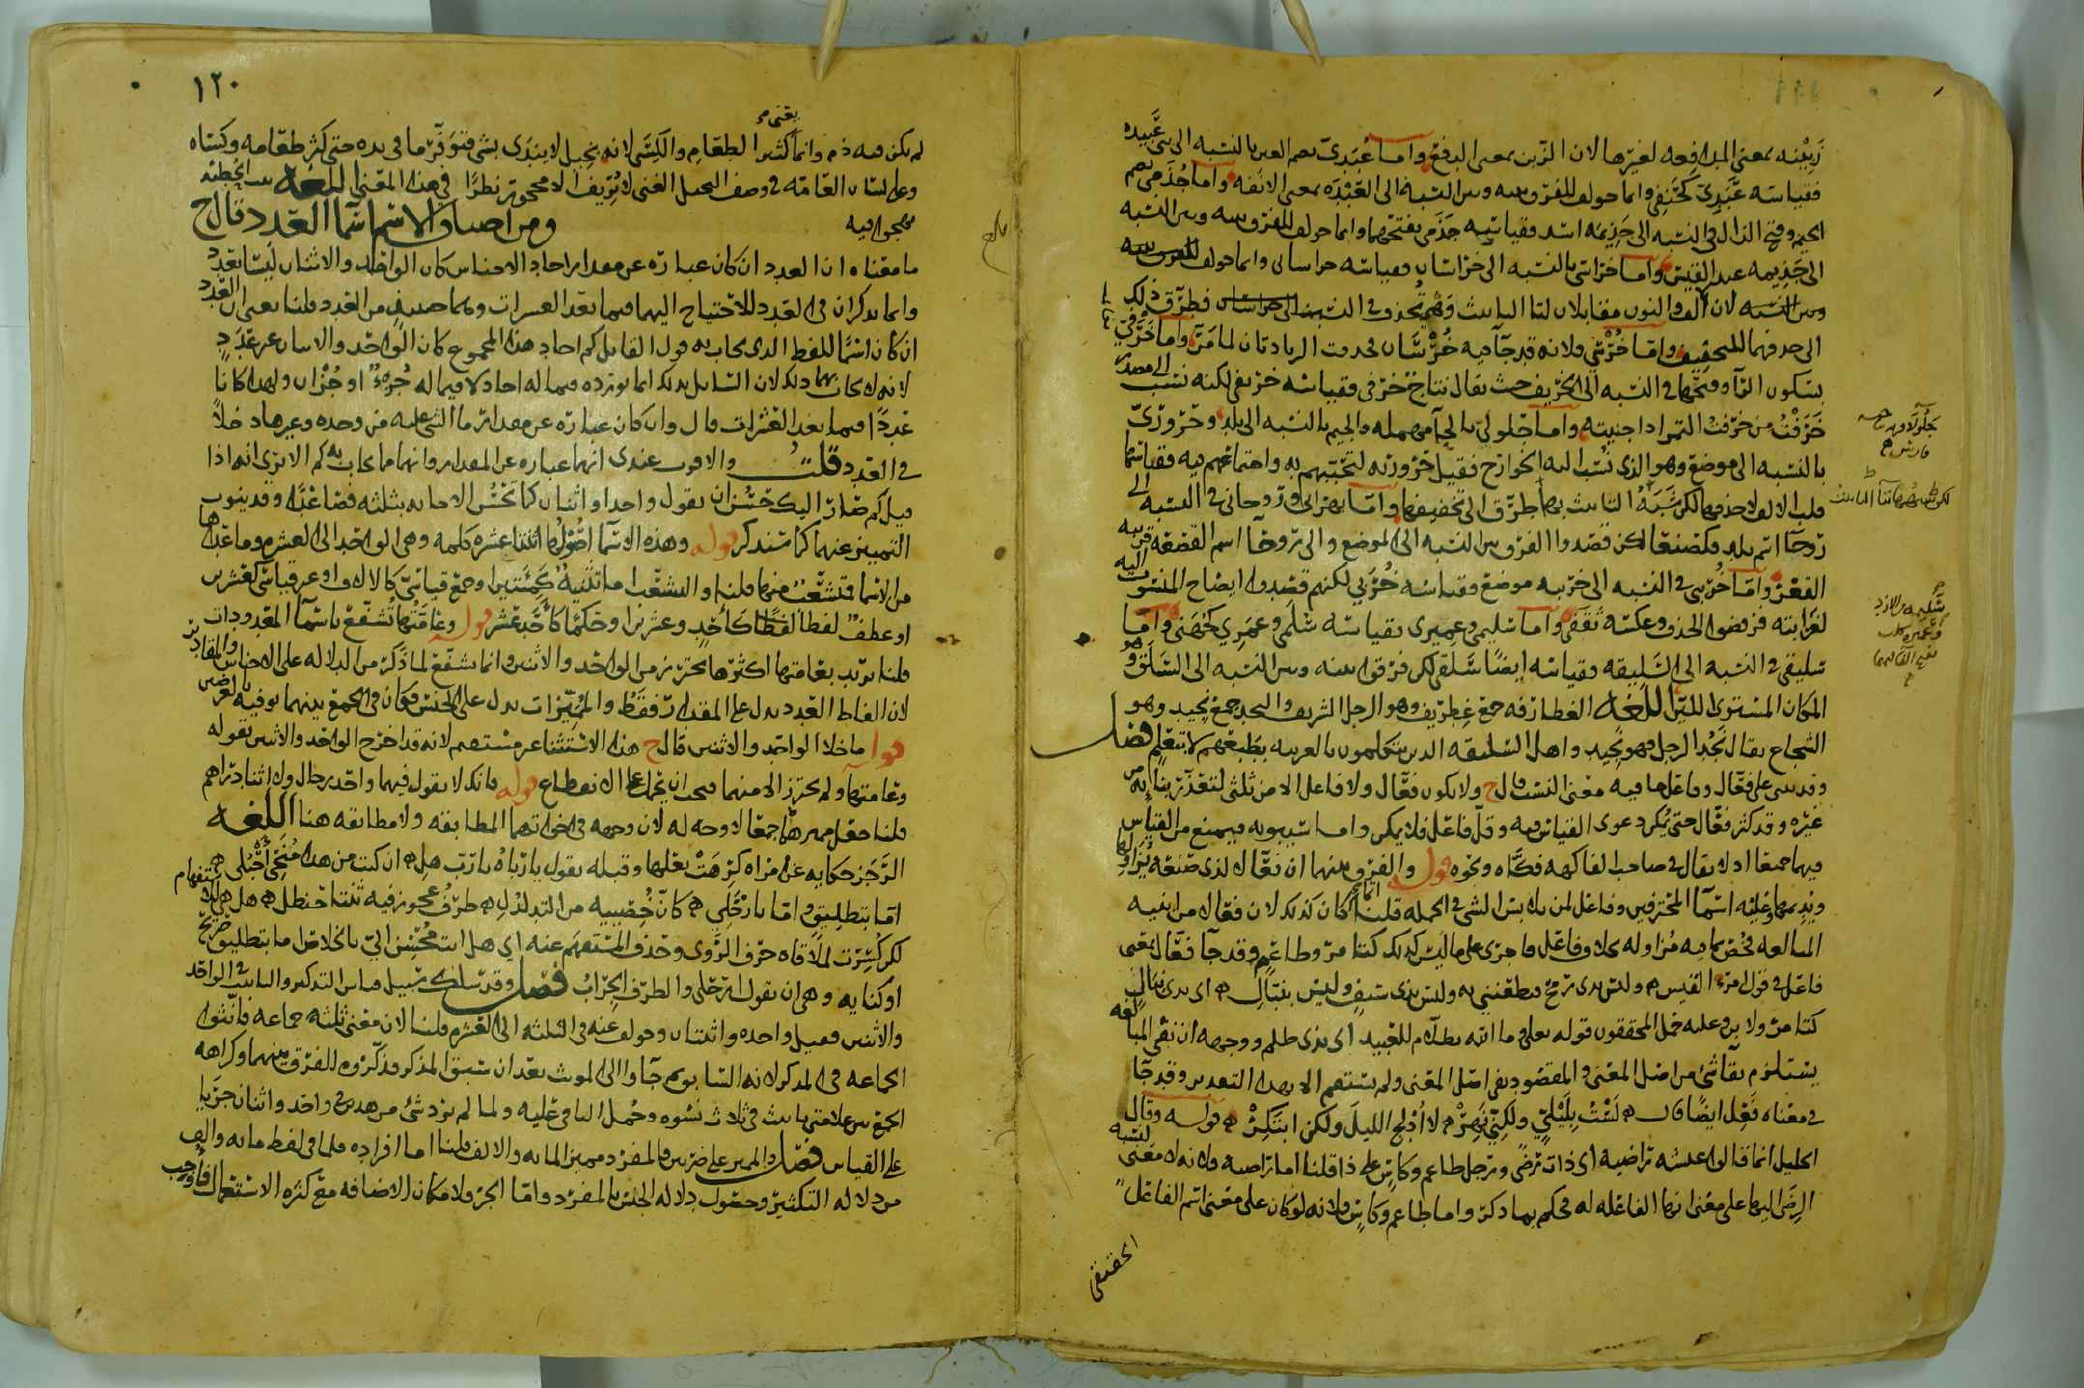 زبينه بمعنى المدافعه لغيرها لان الزبن بمعنى الدفع واما عُبَدىّ بضم العين بالنسبه الى بنى عَبيده
فقياسه عَبَدِىّ كحَنَفِى وانما حولف للفرق بينه وبين النسبة الى العَبَدَه بمعنى الانفه واما جُذَمى بضم
الجيم وفتح الذال فى النسبه الى جَذِيمَه اسد فقياسه جَذَمى بفتحهما وانما حولف للفرق بينه وبين النسبه
الى جَذِيمه عبد القيس واما خراسى بالنسبه الى خراسان فقياسه خراسانى وانما حولف
لان الف والنون مقابلان لتا التانيث وهى تُحذف فى النسبه فطرّق ذلك
الى حذفهما للتخفيف واما خُرْسى فلانه قد جآ فيه خُرْسَان فحذفت الزيادتان لما مَرّ واما خَرْفى
بسكون الرآ وفتحها فى النسبه الى الخريف حيث يقال نتاج خَرْفى فقياسه خريفى لكنه نسب الى مصدر
خَرَفْتُ من خرفت التمر اذا جنيته واما جَلُولىّ بالجيم بالنسبه الى بلد وحَرُورىّ
بالنسبه الى موضع وهو الذى نُسب اليه الخوارج فقيل حَروريّه لتجنبهم به واجتماعهم فيه فقياسهما
قلب الالف لا حذفهما لكن شَبَهُ التانيث بها طرّق الى تخفيفها واما بهرانى وروحانى فى النسبه الى
روحآ اسم بلد فكصنعا لكن قصدوا الفرق بين النسبه الى الموضع والى روحآ اسم القصعه قريبه
القعر واما خُرَيْبى فى النسبه الى خريبه موضع فقياسه خُرَبى لكنهم قصدوا ايضاح المنسوب اليه
لغرابته فرفضوا الحذف وعكسه ثَقَفى واما سليمى وعميرى فقياسه سَلَمى وعَمَرى كجُهَنى واما
سليقى فى النسبه الى السَليقه وقياسه ايضًا سَلَقى لكن فرقوا بينه وبين النسبه الى السَلَق وهو
المكان المستوى اللين اللغه الغطارفه جمع غِطريف وهو الرجل الشريف والنجد جمع نجيد وهو
الشجاع يقال نَجُد الرجل فهو نجيد واهل السليقه الذين يتكلمون بالعربيه بطبعهم لا بتعلم فصل
وقد بنى على فَعّال وفاعل ما فيه معنى النسب قال ح ولا يكون فعّال ولا فاعل الا من ثلثى لتعذر بنايه من
غيره وقد كثر فعّال حتى يُمكن دعوى القياس فيه وقلّ فاعل فلا يمكن واما سيبويه فيمنع من القياس
فيهما جميعا اذ لا يقال لصاحب الفاكهه فكّاه ونحوه قوله والفرق بينهما ان فعّالا لذى صنعه يُزاولها
ويديمها وعليه اسمآ المحترفين وفاعل لمن يلابس الشى فى الجمله قلنا انما كان كذلك لان فعّال من ابنيه
المبالغه فخُصّ بما فيه مُزاوله بخلاف فاعل فاجرى على ما ليس كذلك كتامر وطاعم وقد جآ فعّال بمعنى
فاعل فى قول امرء القيس وليس بذى رمح فيطعننى به وليس بذى سيف وليس بنبّال اى بذى نبال
كتامر ولابن وعليه حمل المحققون قوله تعلى وما الله بظلّام للعبيد اى بذى ظلم ووجهه ان نفى المبالغه
يستلزم بقآ شئ من اصل المعنى والمقصود نفى اصل المعنى ولم يستقم الا بهذا التقدير وقد جآ
فى معناه فَعِل ايضًا قال لَسْتُ بِلَيْلِىّ ولكنّى نَهِرْ لا اُدْلج الليلَ ولكن ابتكِرْ قوله وقال
الخليل انما قالوا عيشه راضيه اى ذات رضى ورجل طاعم وكاسٍ على ذا قلنا اما راضيه فلانه لا معنى لنسبه
الرضى اليها على معنى انها الفاعله له فحكم بما ذكر واما طاعم وكاسٍ فلانه لو كان على معنى اسم الفاعل
الحقيقى
١٢٠
لم يكن فيه ذم وانما يعنى كثير الطعام والكسى لانه بخيل لا يبتدى بشى فتوَفّر ما فى يده حتى كثر طعامه وكساه
وعلى لسان العامه فى وصف البخيل الغنى
مهجوا فيه ومن اصناف الاسم اسما العدد قال ح
ما معناه ان العدد ان كان عباره عن مقدار احاد الاجناس كان الواحد والاثنان ليسا بعدد
وانما يذكران فى العدد للاحتياج اليهما فيما بعد العشرات وهما حينئذ من العدد قلنا يعنى ان العدد
ان كان اسما للفظ الذى يجاب به قول القايل كم احاد هذا المجموع كان الواحد والاثنان غير عَدَدٍ
لانه لا يجاب بهما ذلك لان السايل بذلك انما يورده فيما له احاد لا فيما له جُزءٌ او جُزْآن ولهذا كانا
عددًا فيما بعد العشرات قال وان كان عباره عن مقدار ما الشى عليه من وحده وغيرها دخلا
فى العدد قلتُ والاقرب عندى انهما عباره عن المقدار وانهما ما يجاب به كم الا ترى انه اذا
قيل كم صار اليك حَسُن ان يقول واحد او اثنان كما تَحْسُن الاجابه بثلثه فصاعدًا وقد ينوب
التمييز عنهما كما سنذكر قوله وهذه الاسما اصُولها اثنتا عشره كلمه وهى الواحد الى العشره وما عداها
من الاسما فتشعّب منها قلنا والتشعّب اما تثنيةٌ كمِئَتين او جمع قياسى كالالاف او غير قياسى كعشرين
او عطف لفظا كأحد وعشرين او حكمًا كأحَدَ عَشَر قوله وعَامّتها تُشفع باسمآ المعدودات
قلنا يريد بعامتها اكثرها يحترز من الواحد والاثنين وانما شفع لما ذكر من الدلاله على الاجناس والمقادير
لان الفاظ العدد يدل على المقدار فقط والمُميّزات يدل على الجنس فكان فى الجمع بينهما توفيه الغرضين
قوله ما خلا الواحد والاثنين قال ح هذا الاستثنا غير مستقيم لانه قد اخرج الواحد والاثنين بقوله
وعامتها ولم يحترز الا منهما فيجب ان يُحمل على الانقطاع قوله فانك لا تقول فيهما واحد رجال ولا اثنا دراهم
قلنا جعل مميزها جمعا لا وجه له لان وجهه فى اخواتهما المطابقه ولا مطابقه هنا اللغه
الرَّجَز حكايه عن امراه كرهت بعلها وقبله تقول يا ربّاه يا ربّ هل ان كنت من هذا مُنَجّى أحبُلى
اما بتطليق واما بارْحَلِى كانّ خُصييه من التدلدُلِ طرْفُ عجوز فيه ثنتا حنظل هل هى
لكن كُسِرت لملاقاه حرف الرَّوى وحذف المستفهم عنه اى هل انت مُحْسِن الىّ بالخلاص اما بتطليق صريح
او كنايه وهى ان يقول ارحلى والظرف الجراب فصل وقد سلك سبيل قياس التذكير والتانيث فى الواحد
والاثنين فقيل واحده واثنتان وحولف عنه فى الثلثه الى العشره قلنا لان معنى ثلثه جماعه فانّثوا
الجماعه فى المذكر لانه السابق ثم جآوا الى المونث بعد ان سبق المذكر فذكّروه للفرق بينهما وكراهه
الجمع بين علامتى تانيث فى ثلاث نسوه وحُمل الباقى عليه ولما لم يرد شئ من هذين فى واحد واثنان جرَيا
على القياس فصل والمميز على ضربين فالمفرد مميز المايه والالف قلنا اما افراده فلما فى لفظ مايه والف
من دلاله التكثير وحصول دلاله الجنس بالمفرد واما الجر فلامكان الاضافه مع كثره الاستعمال فاوجب